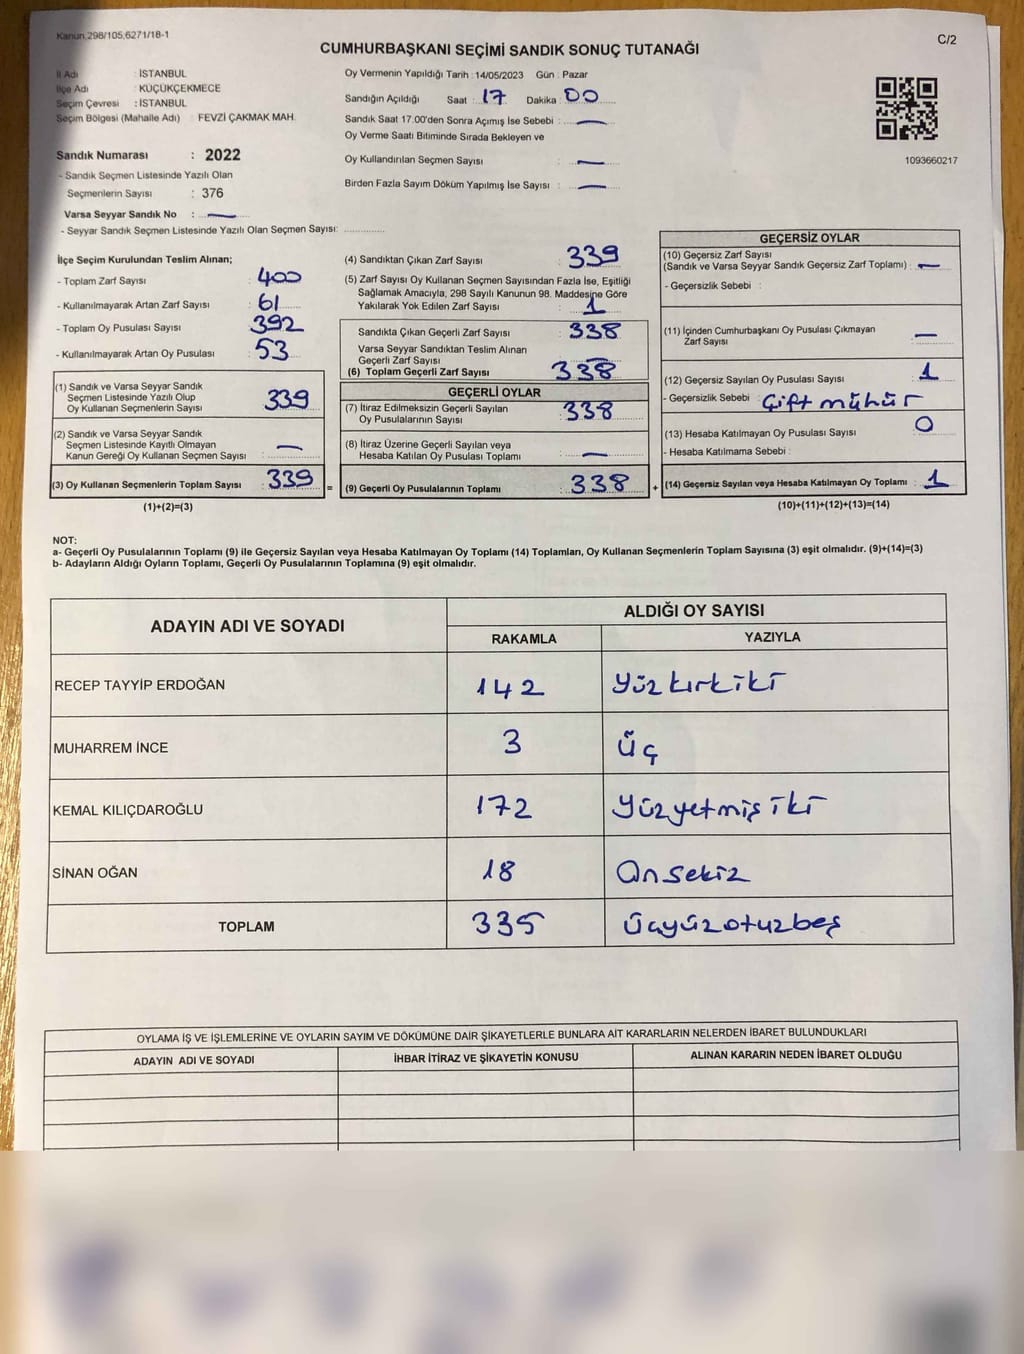 Kanun,298/105,6271/18-1
C/2
CUMHURBAŞKANI SEÇİMİ SANDIK SONUÇ TUTANAĞI
İl Adı : İSTANBUL
İlçe Adı : KÜÇÜKÇEKMECE
Seçim Çevresi : İSTANBUL
Seçim Bölgesi (Mahalle Adı) : FEVZİ ÇAKMAK MAH.
Sandık Numarası : 2022
- Sandık Seçmen Listesinde Yazılı Olan
Seçmenlerin Sayısı : 376
Varsa Seyyar Sandık No : —
- Seyyar Sandık Seçmen Listesinde Yazılı Olan Seçmen Sayısı:
Oy Vermenin Yapıldığı Tarih : 14/05/2023 Gün : Pazar
Sandığın Açıldığı Saat : 17 Dakika : 00
Sandık Saat 17.00'den Sonra Açımış İse Sebebi : —
Oy Verme Saati Bitiminde Sırada Bekleyen ve
Oy Kullandırılan Seçmen Sayısı : —
Birden Fazla Sayım Döküm Yapılmış İse Sayısı : —
1093660217
İlçe Seçim Kurulundan Teslim Alınan;
- Toplam Zarf Sayısı : 400
- Kullanılmayarak Artan Zarf Sayısı : 61
- Toplam Oy Pusulası Sayısı : 392
- Kullanılmayarak Artan Oy Pusulası : 53
(1) Sandık ve Varsa Seyyar Sandık
Seçmen Listesinde Yazılı Olup
Oy Kullanan Seçmenlerin Sayısı : 339
(2) Sandık ve Varsa Seyyar Sandık
Seçmen Listesinde Kayıtlı Olmayan
Kanun Gereği Oy Kullanan Seçmen Sayısı : —
(3) Oy Kullanan Seçmenlerin Toplam Sayısı : 339 =
(1)+(2)=(3)
(4) Sandıktan Çıkan Zarf Sayısı : 339
(5) Zarf Sayısı Oy Kullanan Seçmen Sayısından Fazla İse, Eşitliği
Sağlamak Amacıyla, 298 Sayılı Kanunun 98. Maddesine Göre
Yakılarak Yok Edilen Zarf Sayısı : 1
Sandıkta Çıkan Geçerli Zarf Sayısı : 338
Varsa Seyyar Sandıktan Teslim Alınan
Geçerli Zarf Sayısı : —
(6) Toplam Geçerli Zarf Sayısı : 338
GEÇERLİ OYLAR
(7) İtiraz Edilmeksizin Geçerli Sayılan
Oy Pusulalarının Sayısı : 338
(8) İtiraz Üzerine Geçerli Sayılan veya
Hesaba Katılan Oy Pusulası Toplamı : —
(9) Geçerli Oy Pusulalarının Toplamı : 338 +
GEÇERSİZ OYLAR
(10) Geçersiz Zarf Sayısı
(Sandık ve Varsa Seyyar Sandık Geçersiz Zarf Toplamı) : —
- Geçersizlik Sebebi :
(11) İçinden Cumhurbaşkanı Oy Pusulası Çıkmayan
Zarf Sayısı : —
(12) Geçersiz Sayılan Oy Pusulası Sayısı : 1
- Geçersizlik Sebebi : Çift mühür
(13) Hesaba Katılmayan Oy Pusulası Sayısı : 0
- Hesaba Katılmama Sebebi :
(14) Geçersiz Sayılan veya Hesaba Katılmayan Oy Toplamı : 1
(10)+(11)+(12)+(13)=(14)
NOT:
a- Geçerli Oy Pusulalarının Toplamı (9) ile Geçersiz Sayılan veya Hesaba Katılmayan Oy Toplamı (14) Toplamları, Oy Kullanan Seçmenlerin Toplam Sayısına (3) eşit olmalıdır. (9)+(14)=(3)
b- Adayların Aldığı Oyların Toplamı, Geçerli Oy Pusulalarının Toplamına (9) eşit olmalıdır.
ADAYIN ADI VE SOYADI ALDIĞI OY SAYISI
RAKAMLA YAZIYLA
RECEP TAYYİP ERDOĞAN 142 yüz kırk iki
MUHARREM İNCE 3 üç
KEMAL KILIÇDAROĞLU 172 yüzyetmiş iki
SİNAN OĞAN 18 onsekiz
TOPLAM 335 üçyüzotuzbeş
OYLAMA İŞ VE İŞLEMLERİNE VE OYLARIN SAYIM VE DÖKÜMÜNE DAİR ŞİKAYETLERLE BUNLARA AİT KARARLARIN NELERDEN İBARET BULUNDUKLARI
ADAYIN ADI VE SOYADI İHBAR İTİRAZ VE ŞİKAYETİN KONUSU ALINAN KARARIN NEDEN İBARET OLDUĞU